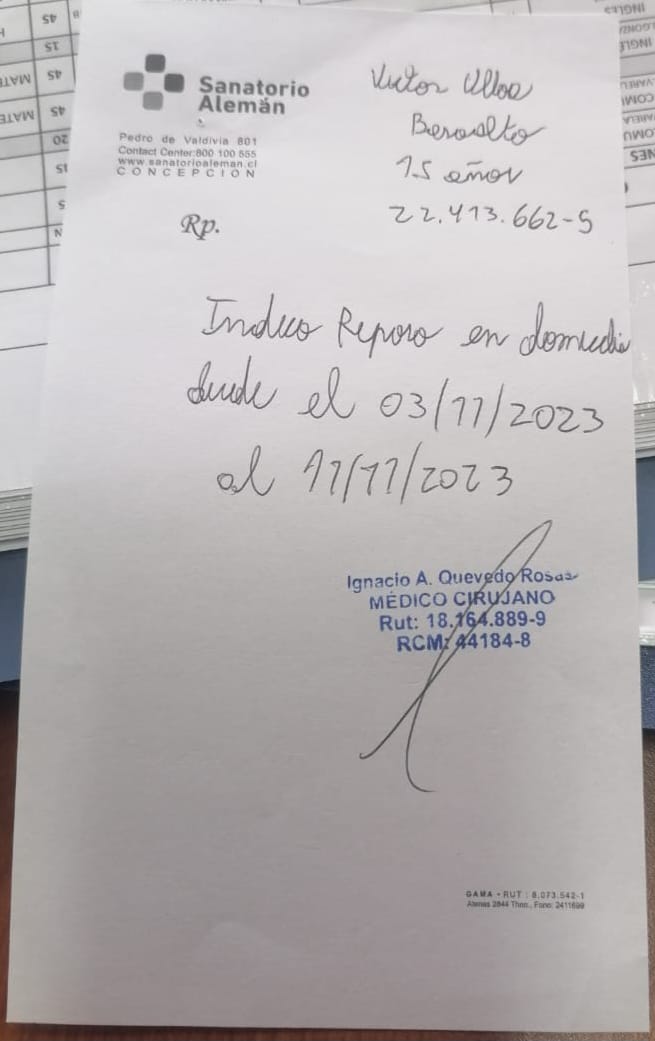 Sanatorio
Alemán
Pedro de Valdivia 801
Contact Center:800 100 555
www.sanatorioaleman.cl
CONCEPCION
Victor Ulloa
Basoalto
15 años
22.413.662-5
Rp.
Indico Reposo en domicilio
desde el 03/11/2023
al 11/11/2023
Ignacio A. Quevedo Rosas
MÉDICO CIRUJANO
Rut: 18.164.889-9
RCM: 44184-8
GAMA - RUT : 8.073.542-1
Atenas 2844 Thno., Fono: 2411699
45
15
45
45
20
15
INGLES
MATE